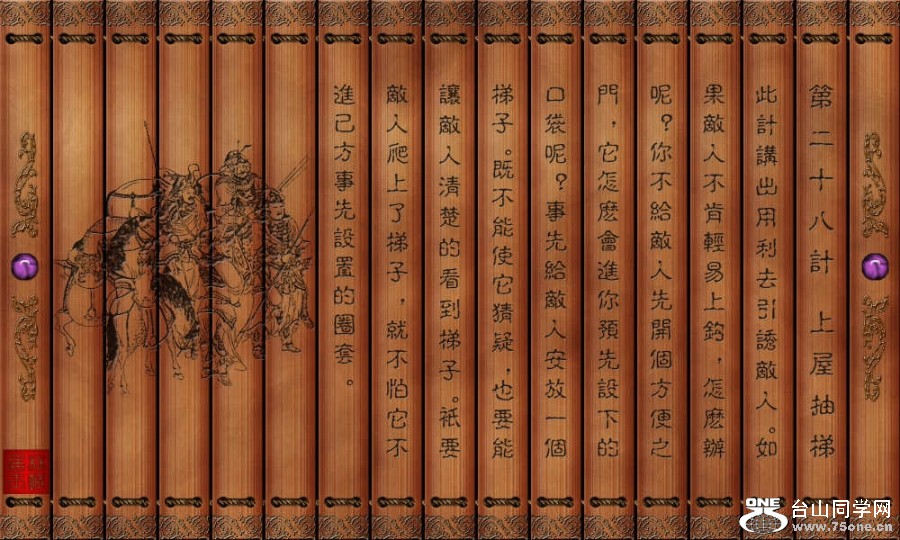 第二十八計 上屋抽梯
此計講出用利去引誘敵人。如
果敵人不肯輕易上鈎，怎麽辦
呢？你不給敵人先開個方便之
門，它怎麽會進你預先設下的
口袋呢？事先給敵人安放一個
梯子。既不能使它猜疑，也要能
讓敵人清楚的看到梯子。祗要
敵人爬上了梯子，就不怕它不
進己方事先設置的圈套。
ONE
台山同学网
www.75one.cn